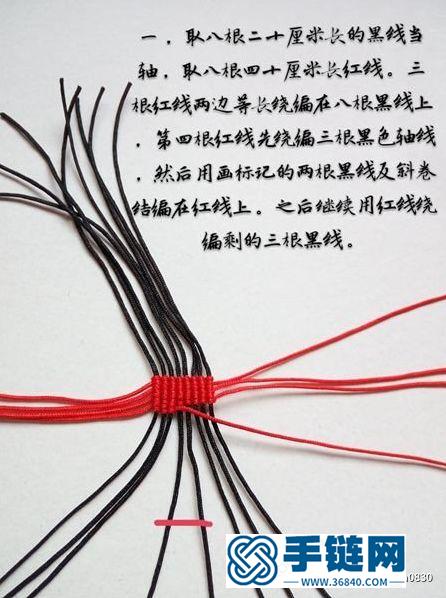 一，取八根二十厘米长的黑线当
轴，取八根四十厘米长红线。三
根红线两边等长绕编在八根黑线上
，第四根红线先绕编三根黑色轴线
，然后用画标记的两根黑线反斜卷
结编在红线上。之后继续用红线绕
编剩的三根黑线。
手链网
www.36840.com
0830